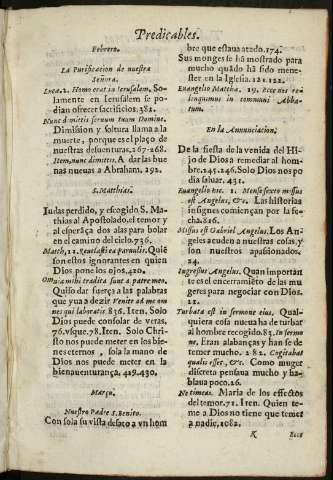 Predicables.
Febrero.
La Purificacion de nuestra
Señora.
Luca. 2. Homo erat in Ierusalem. So-
lamente en Ierusalem se po-
dian ofrecer sacrificios. 382.
Nunc dimittis seruum tuum Domine.
Dimission y soltura llama a la
muerte, porque es el plaço de
nuestras desuenturas, 267-268.
Item, nunc dimittis. A dar las bue
nas nueuas a Abraham. 292.
S. Matthias.
Iudas perdido, y escogido S. Ma-
thias al Apostolado, el temor y
al esperãça dos alas para bolar
en el camino del cielo. 736.
Match, 11. Reuelasti ea paruulis. Quiē
son estos ignorantes en quien
Dios pone los ojos. 420.
Omnia mihi tradita sunt a patre meo.
Quiso dar fuerça a las palabras
que yua a dezir Venite ad me om
nes qui laboratis. 836. Iten. Solo
Dios puede consolar de veras,
76. vsque. 78. Iten. Solo Chri-
sto nos puede meter en los bie-
nes eternos, sola la mano de
Dios nos puede meter en la
bienauenturança, 429. 430.
Março.
Nuestro Padre S. Benito.
Con sola su vista desato a vn hom
bre que estaua atado. 174.
Sus monges se ha mostrado para
mucho quãdo hã sido mene-
ster en la Iglesia. 121. 122.
Euangelio Matthæ. 19. Ecce nos re-
linquimus in communi Abba-
tum.
En la Annunciacion.
De la fiesta de la venida del Hi-
jo de Dios a remediar al hom-
bre. 245. 246. Solo Dios nos po
dia saluar. 431.
Euangelio Luc. 1. Mense sexto missus
est Angelus, &c. Las historias
insignes comiençan por la fe-
cha. 816.
Missus est Gabriel Angelus. Los An-
geles acuden a nuestras cosas, y
son nuestros apassionados.
24.
Ingressus Angelus. Quan important
te es el encerramiento de las mu
geres para negociar con Dios.
22.
Turbata est in sermone eius. Qual-
quiera cosa nueua ha de turbar
al hombre recogido. 83. In sermo
ne. Eran alabanças y han se de
temer mucho. 282. Cogitabat
qualis esset, &c. Como muger
discreta pensaua mucho y ha-
blaua poco. 26.
Ne timeas. Maria de los effectos
del temor. 71. Iten. Quien te-
me a Dios no tiene que temer
a nadie, 1082.
K